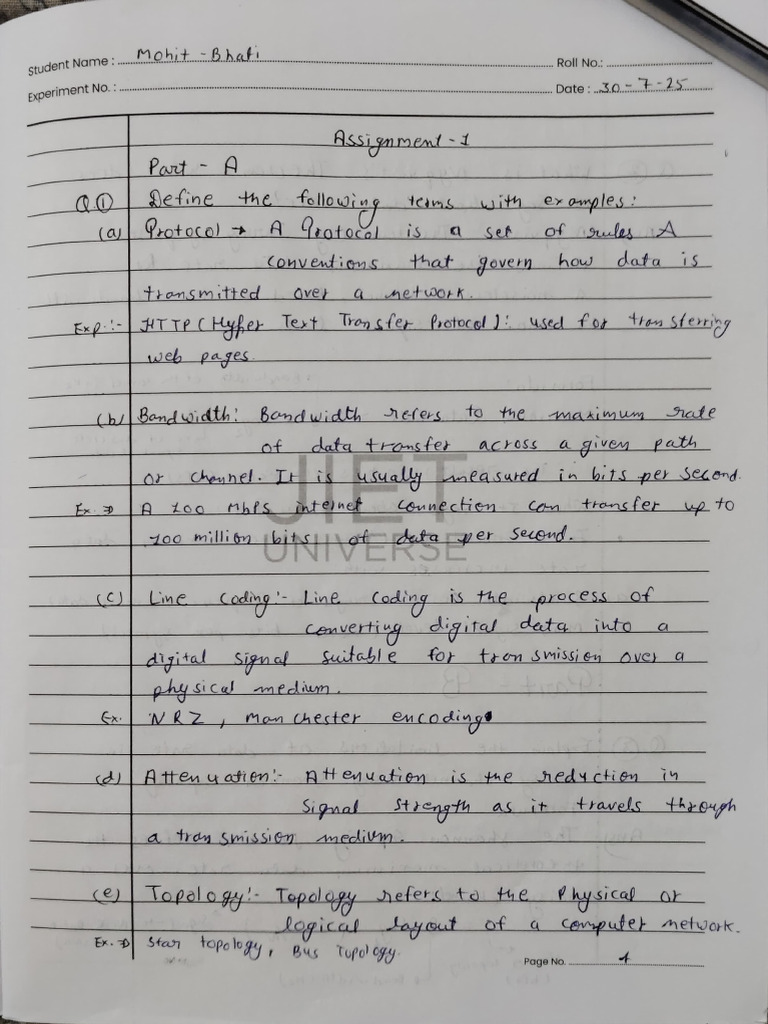 Student Name : Mohit - Bhati Roll No.:
Experiment No. : Date : 30-7-25
Assignment - 1
Part - A
Q① Define the following terms with examples:
(a) Protocol → A Protocol is a set of rules A
conventions that govern how data is
transmitted over a network.
Exp:- HTTP (Hyper Text Transfer Protocol): used for transferring
web pages.
(b) Bandwidth: Bandwidth refers to the maximum rate
of data transfer across a given path
or channel. It is usually measured in bits per second.
Ex. ⇒ A 100 Mbps internet connection can transfer up to
100 million bits of data per second.
JIET
UNIVERSE
(c) Line Coding:- Line Coding is the process of
converting digital data into a
digital signal suitable for transmission over a
physical medium.
Ex. NRZ, Manchester encoding
(d) Attenuation:- Attenuation is the reduction in
Signal Strength as it travels through
a transmission medium.
(e) Topology:- Topology refers to the Physical or
logical layout of a computer network.
Ex. ⇒ Star topology, Bus Topology.
Page No. 1